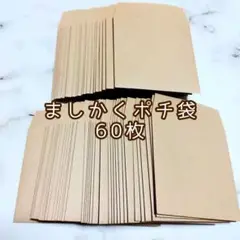 ましかくポチ袋
60枚